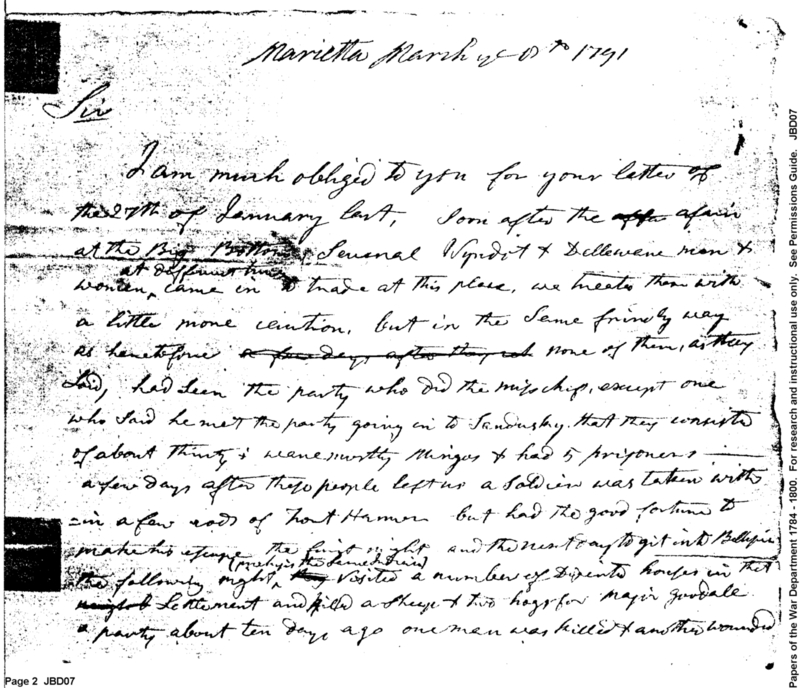 Marietta March ye 8th 1791
Sir
I am much obliged to you for your letter of
the 27th of January last, Soon after the affair afair
at the Big Bottom, Several Wyndot & Dellewane men &
at different times
women, came in to trade at this place, we treated them with
a little more caution, but in the Same frindly way
as heretofore a few days after they none of them, as they
Said, had Seen the party who did the mischief, except one
who Said he met the party going in to Sandusky, that they consisted
of about thirty & were mostly Mingos & had 5 prisoners
a few days after these people left us a Soldier was taken with
=in a few rods of Fort Harmer but had the good fortune to
make his escape the first night and the next day to git into Bellprie
the following night, they Visited a number of houses in that
Settlement and killd a Sheep & two hogs for major goodale
a party about ten days ago one man was killed & another wounded
Page 2 JBD07
Papers of the War Department 1784 - 1800. For research and instructional use only. See Permissions Guide. JBD07